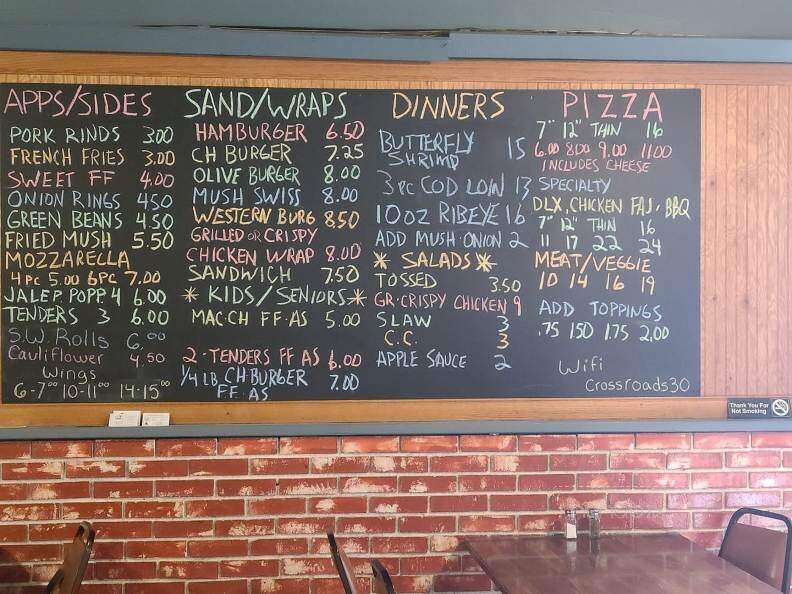 APPS/SIDES
PORK RINDS 3.00
FRENCH FRIES 3.00
SWEET FF 4.00
ONION RINGS 4.50
GREEN BEANS 4.50
FRIED MUSH 5.50
MOZZARELLA
4 PC 5.00 6PC 7.00
JALEP. POPP 4 6.00
TENDERS 3 6.00
S.W. Rolls 6.00
Cauliflower 4.50
Wings
6-7.00 10-11.00 14-15.00
SAND/WRAPS
HAMBURGER 6.50
CH BURGER 7.25
OLIVE BURGER 8.00
MUSH SWISS 8.00
WESTERN BURG 8.50
GRILLED OR CRISPY
CHICKEN WRAP 8.00
SANDWICH 7.50
* KIDS/SENIORS *
MAC.CH FF.AS 5.00
2-TENDERS FF AS 6.00
1/4 LB CH.BURGER 7.00
FF. AS
DINNERS
BUTTERFLY 15
SHRIMP
3 PC COD LOIN 13
10 OZ RIBEYE 16
ADD MUSH.ONION 2
* SALADS *
TOSSED 3.50
GR.CRISPY CHICKEN 9
SLAW 3
C.C. 3
APPLE SAUCE 2
PIZZA
7" 12" THIN 16
6.00 8.00 9.00 11.00
INCLUDES CHEESE
SPECIALTY
DLX, CHICKEN FAJ, BBQ
7" 12" THIN 16
11 17 22 24
MEAT/VEGGIE
10 14 16 19
ADD TOPPINGS
.75 1.50 1.75 2.00
Wifi
Crossroads30
Thank You For
Not Smoking